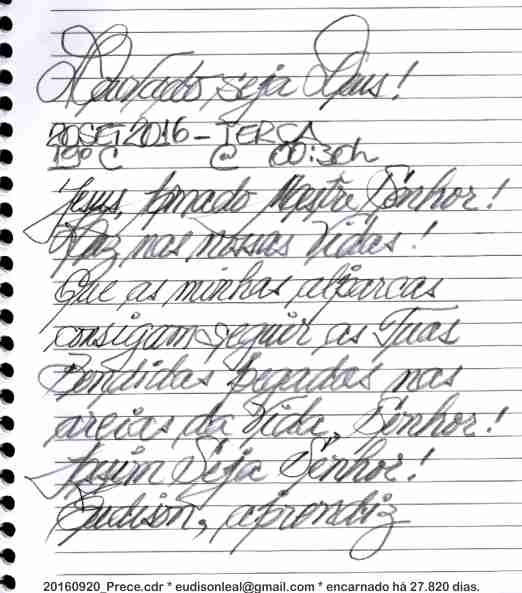 Louvado seja Deus!
20SET2016 - TERÇA
19º C @ 00:30h
Jesus, Amado Mestre Senhor!
Paz nas nossas Vidas!
Que as minhas alparcas
consigam seguir as Tuas
Bendidas Pegadas nas
areias da Vida, Senhor!
Assim Seja Senhor!
Eudison, aprendiz
20160920_Prece.cdr * eudisonleal@gmail.com * encarnado há 27.820 dias.